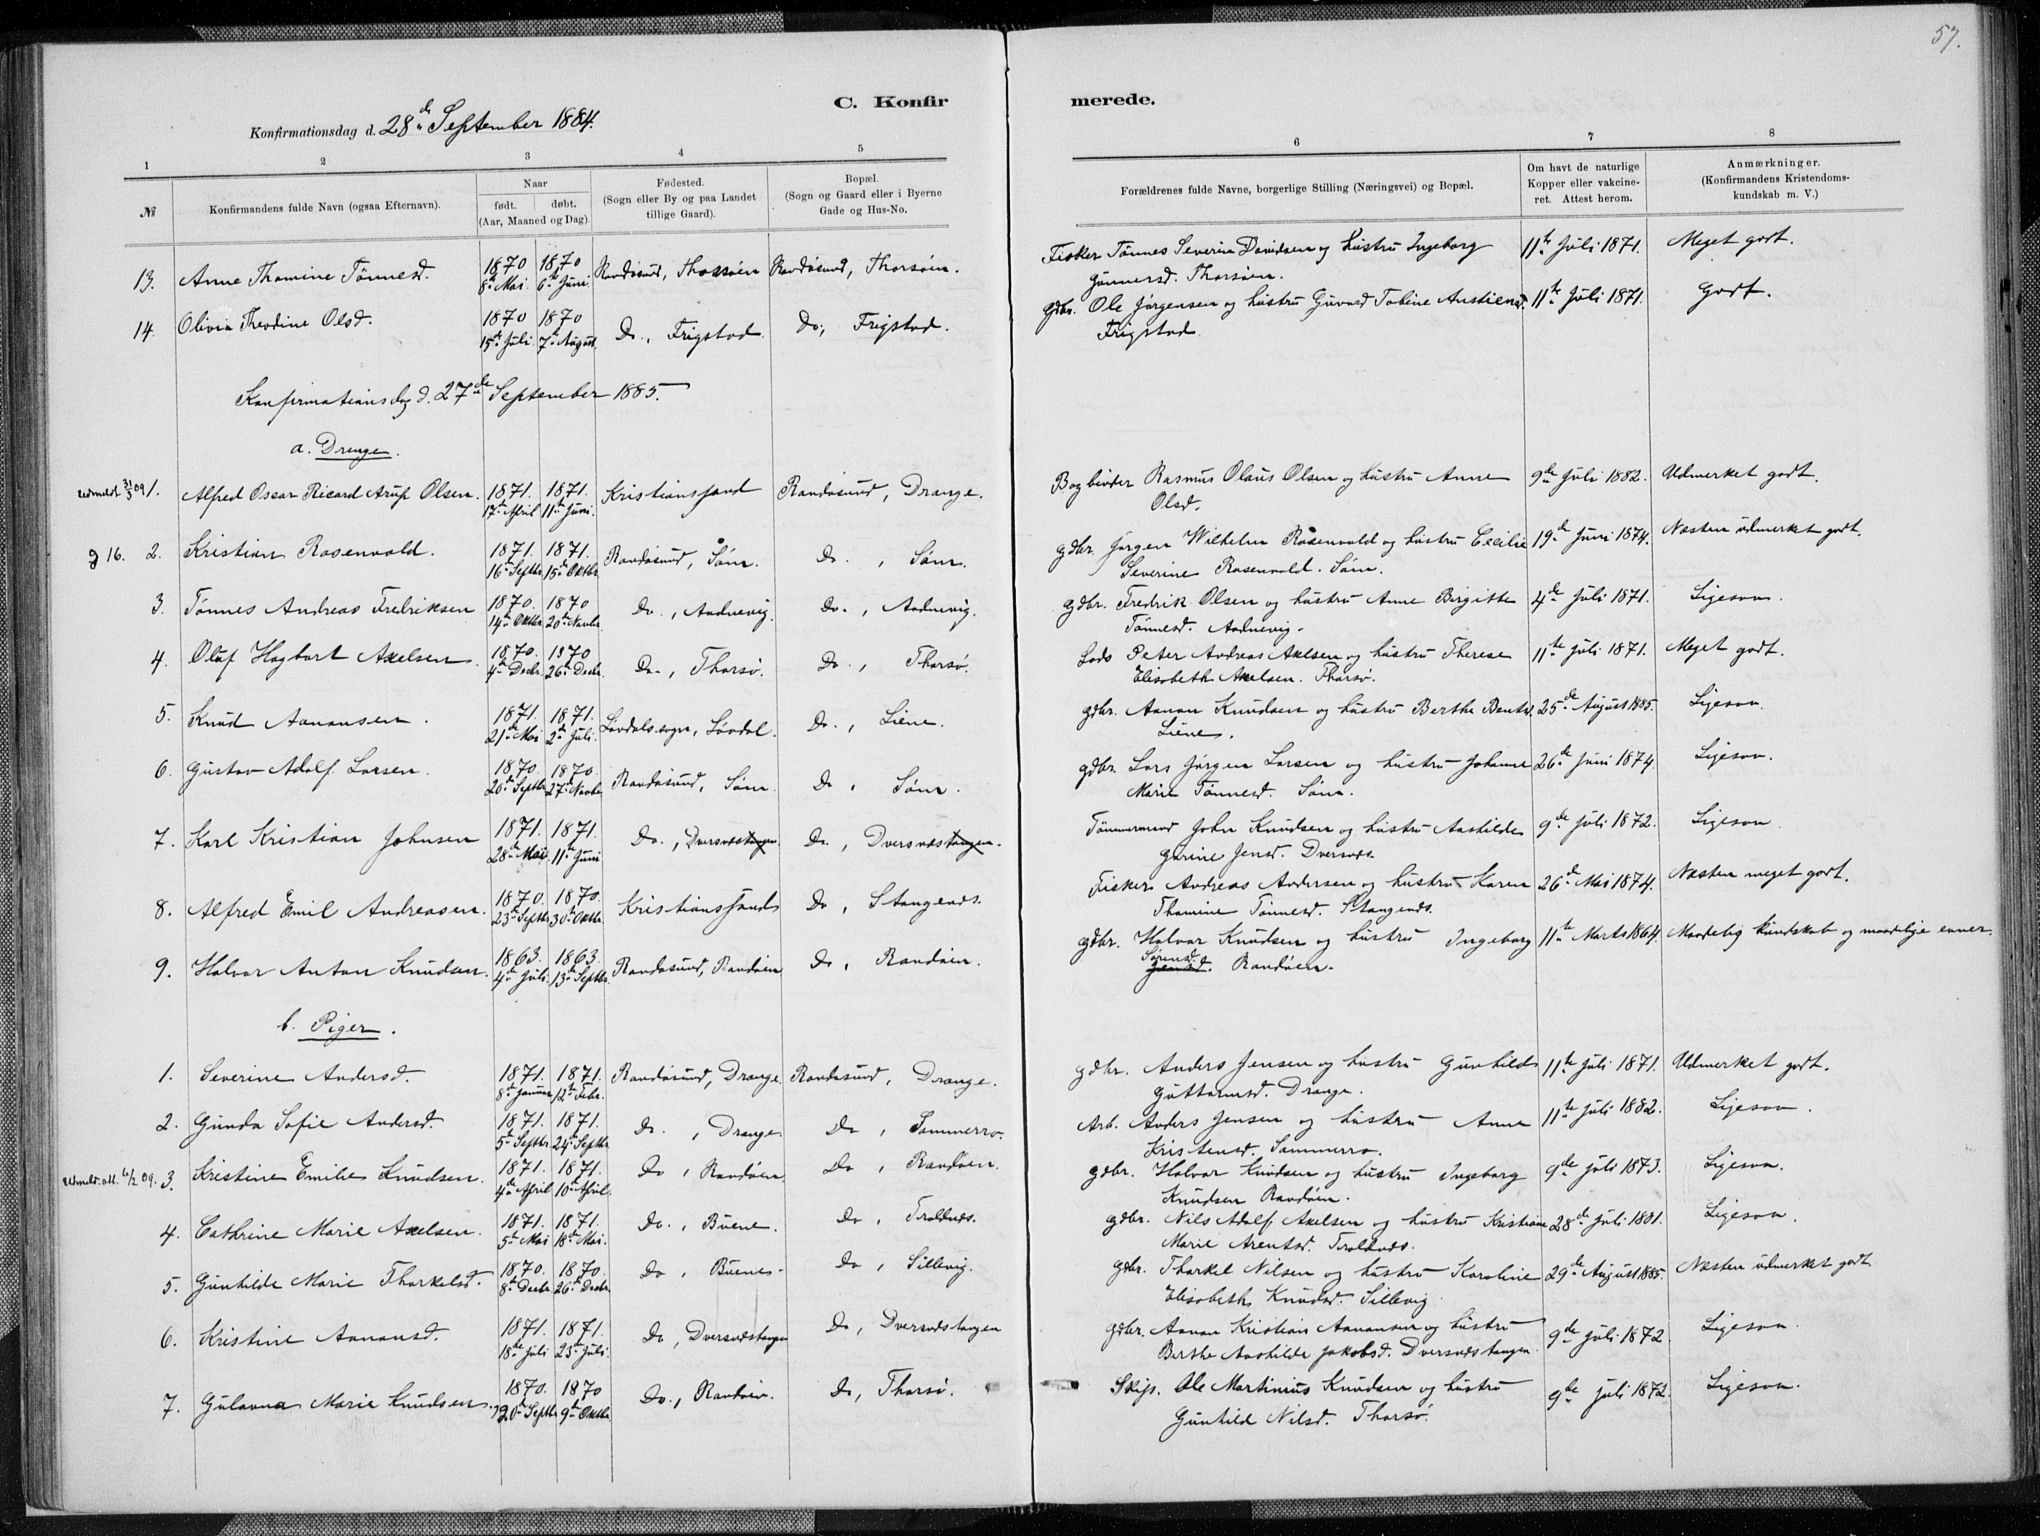 57.
C. Konfirmerede.
Konfirmationsdag d. 28de September 1884.
1 2 3 4 5 6 7 8
№
Konfirmandens fulde Navn (ogsaa Efternavn).
Naar
født. døbt.
(Aar, Maaned og Dag).
Fødested.
(Sogn eller By og paa Landet
tillige Gaard).
Bopæl.
(Sogn og Gaard eller i Byerne
Gade og Hus-No.
Forældrenes fulde Navne, borgerlige Stilling (Næringsvei) og Bopæl.
Om havt de naturlige
Kopper eller vakcine-
ret. Attest herom.
Anmærkninger.
(Konfirmandens Kristendoms-
kundskab m. V.)
13. Anne Thomine Tønnesd. 1870 1870 Randøsund, Thorsøen Randøsund, Thorsøen. Fisker Tønnes Severin Davidsen og hustru Ingeborg 11te Juli 1871. Meget godt.
8de Mai. 6te Juni. Gunnersd. Thorsøen.
14. Olivia Theodine Olsd. 1870 1870 Do., Frigstad. Do, Frigstad. Gdbr. Ole Jørgensen og hustru Guvard Tobine Austiensd. 11te Juli 1871. Godt.
15de Juli. 7de August. Frigstad.
Konfirmationsdag d. 27de September 1885.
a. Drenge.
Udmeldt 31/3 09 1. Alfred Oscar Ricard Arup Olsen. 1871. 1871. Kristianssand Randøsund, Drange. Bogbinder Rasmus Olaus Olsen og hustru Anne 9de Juli 1882. Udmerket godt.
17de April 11te Juni. Olsd.
g 16. 2. Kristian Rosenvold. 1871. 1871. Randøsund, Søm. Do. , Søm. gdbr. Jørgen Wilhelm Rosenvold og hustru Cecilie 19de Juni 1874. Næsten udmerket godt.
16de Septbr. 15de Oktbr. Severine Rosenvold. Søm.
3. Tønnes Andreas Fredriksen 1870. 1870 Do., Aadnevig. Do., Aadnevig. gdbr. Fredrik Olsen og hustru Anne Birgitte 4de Juli 1871. Ligesaa.
14de Oktbr. 20de Novbr. Tønnesd. Aadnevig.
4. Oluf Hagbart Axelsen. 1870. 1870 Do., Thorsø. Do., Thorsø. Lods Peter Andreas Axelsen og hustru Therese 11te Juli 1871. Meget godt.
4de Decbr. 26de Decbr. Elisabeth Axelsen. Thorsø.
5. Knud Aanansen. 1871. 1871. Løvdals sogn, Løvdal. Do., Liene. gdbr. Aanan Knudsen og hustru Berthe Bentsd. 25de August 1885. Ligesaa.
21de Mai 2den Juli. Liene.
6. Gustav Adolf Larsen. 1870. 1870. Randøsund, Søm. Do, Søm. gdbr. Lars Jørgen Larsen og hustru Johanne 26de Juni 1874. Ligesaa.
26de Septbr. 27de Novbr. Marie Tønnesd. Søm.
7. Karl Kristian Johnsen 1871. 1871. Do., Dversnæstangen. Do., Dversnæstangen. Tømmermand John Knudsen og hustru Aashilde 9de Juli 1872. Ligesaa.
28de Mai. 11te Juni Gurine Jensd. Dversnæs.
8. Alfred Emil Andreasen. 1870. 1870. Kristianssand Do, Stangenæs. Fisker Andreas Andersen og hustru Karen 26de Mai 1874. Næsten meget godt.
23de Septbr. 30de Oktbr. Thomine Tønnesd. Stangenæs.
9. Halvor Anton Knudsen. 1863. 1863. Randøsund, Randøen Do, Randøen. gdbr. Halvor Knudsen og hustru Ingeborg 11te Marts 1864. Maadelig kundskab og maadelige evner.
4de Juli. 13de Septbr. Sørensd.
Jensd. Randøen.
b. Piger.
1. Severine Andersd. 1871. 1871. Randøsund, Drange Randøsund, Drange. gdbr. Anders Jensen og hustru Gunhild 11te Juli 1871. Udmerket godt.
8de Januar 12te Febr. Guttormsd. Drange.
2. Gunda Sofie Andersd. 1871. 1871. Do. , Drange Do , Sommerro. Arb. Anders Jensen og hustru Anne 11te Juli 1882. Ligesaa.
5te Septbr 24de Septbr Kristensd. Sommerro.
Udmeld. att. 6/2 09. 3. Kristine Emilie Knudsen. 1871. 1871. Do , Randøen Do , Randøen. gdbr. Halvor Knudsen og hustru Ingeborg 9de Juli 1873. Ligesaa.
4de April 10de April. Knudsen Randøen.
4. Cathrine Marie Axelsen. 1871. 1871. Do. , Buene. Do , Troldnæs. gdbr. Nils Adolf Axelsen og hustru Kristiane 28de Juli 1881. Ligesaa.
5te Mai 18de Mai. Marie Arentsd. Troldnæs.
5. Gunhilde Marie Thorkelsd. 1870. 1870. Do , Buene. Do , Sillevig. gdbr. Thorkel Nilsen og hustru Karoline 29de August 1885. Næsten udmerket godt
8de Decbr. 26de Decbr. Elisabeth Knudsd. Sillevig
6. Kristine Aanansd. 1871. 1871. Do, Dversnæstangen Do, Dversnæstangen gdbr. Aanan Kristian Aanansen og hustru 9de Juli 1872. Ligesaa.
18de Juli 23de Juli. Berthe Aashilde Jakobsd. Dversnæstangen.
7. Gulavna Marie Knudsen. 1870. 1870 Do., Randøen. Do, Thorsø. Skips. Ole Martinius Knudsen og hustru 9de Juli 1872. Ligesaa.
20de Septbr 9de Oktbr. Gunhild Nilsd. Thorsø.